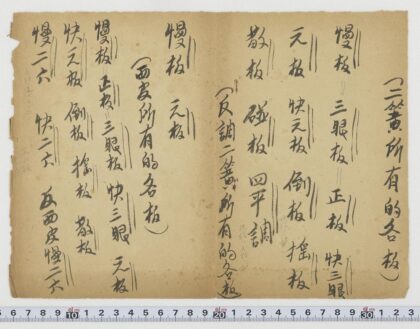 (二簧所有的各板)
慢板 三眼板 正板 快三眼
元板 快元板 倒板 摇板
散板 碰板 四平調
(反調二簧所有的各板)
慢板 元板
(西皮所有的各板)
慢板 正板 三眼板 快三眼 元板
快元板 倒板 摇板 散板
慢二六 快二六 反西皮慢二六